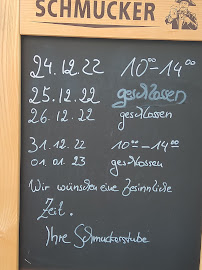 SCHMUCKER
24.12.22 10⁰⁰-14⁰⁰
25.12.22 geschlossen
26.12.22 geschlossen
31.12.22 10⁰⁰-14⁰⁰
01.01.23 geschlossen
Wir wünschen eine besinnliche
Zeit.
Ihre Schmuckerstube